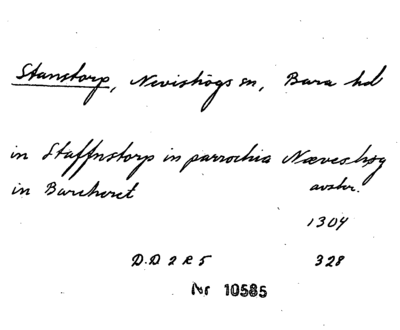 Stanstorp, Nevishögs sn, Bara hd
in Staffnstorp in parrochia Næveshøg
in Bareheret
avskr.
1304
D.D 2 R 5 328
Nr 10585